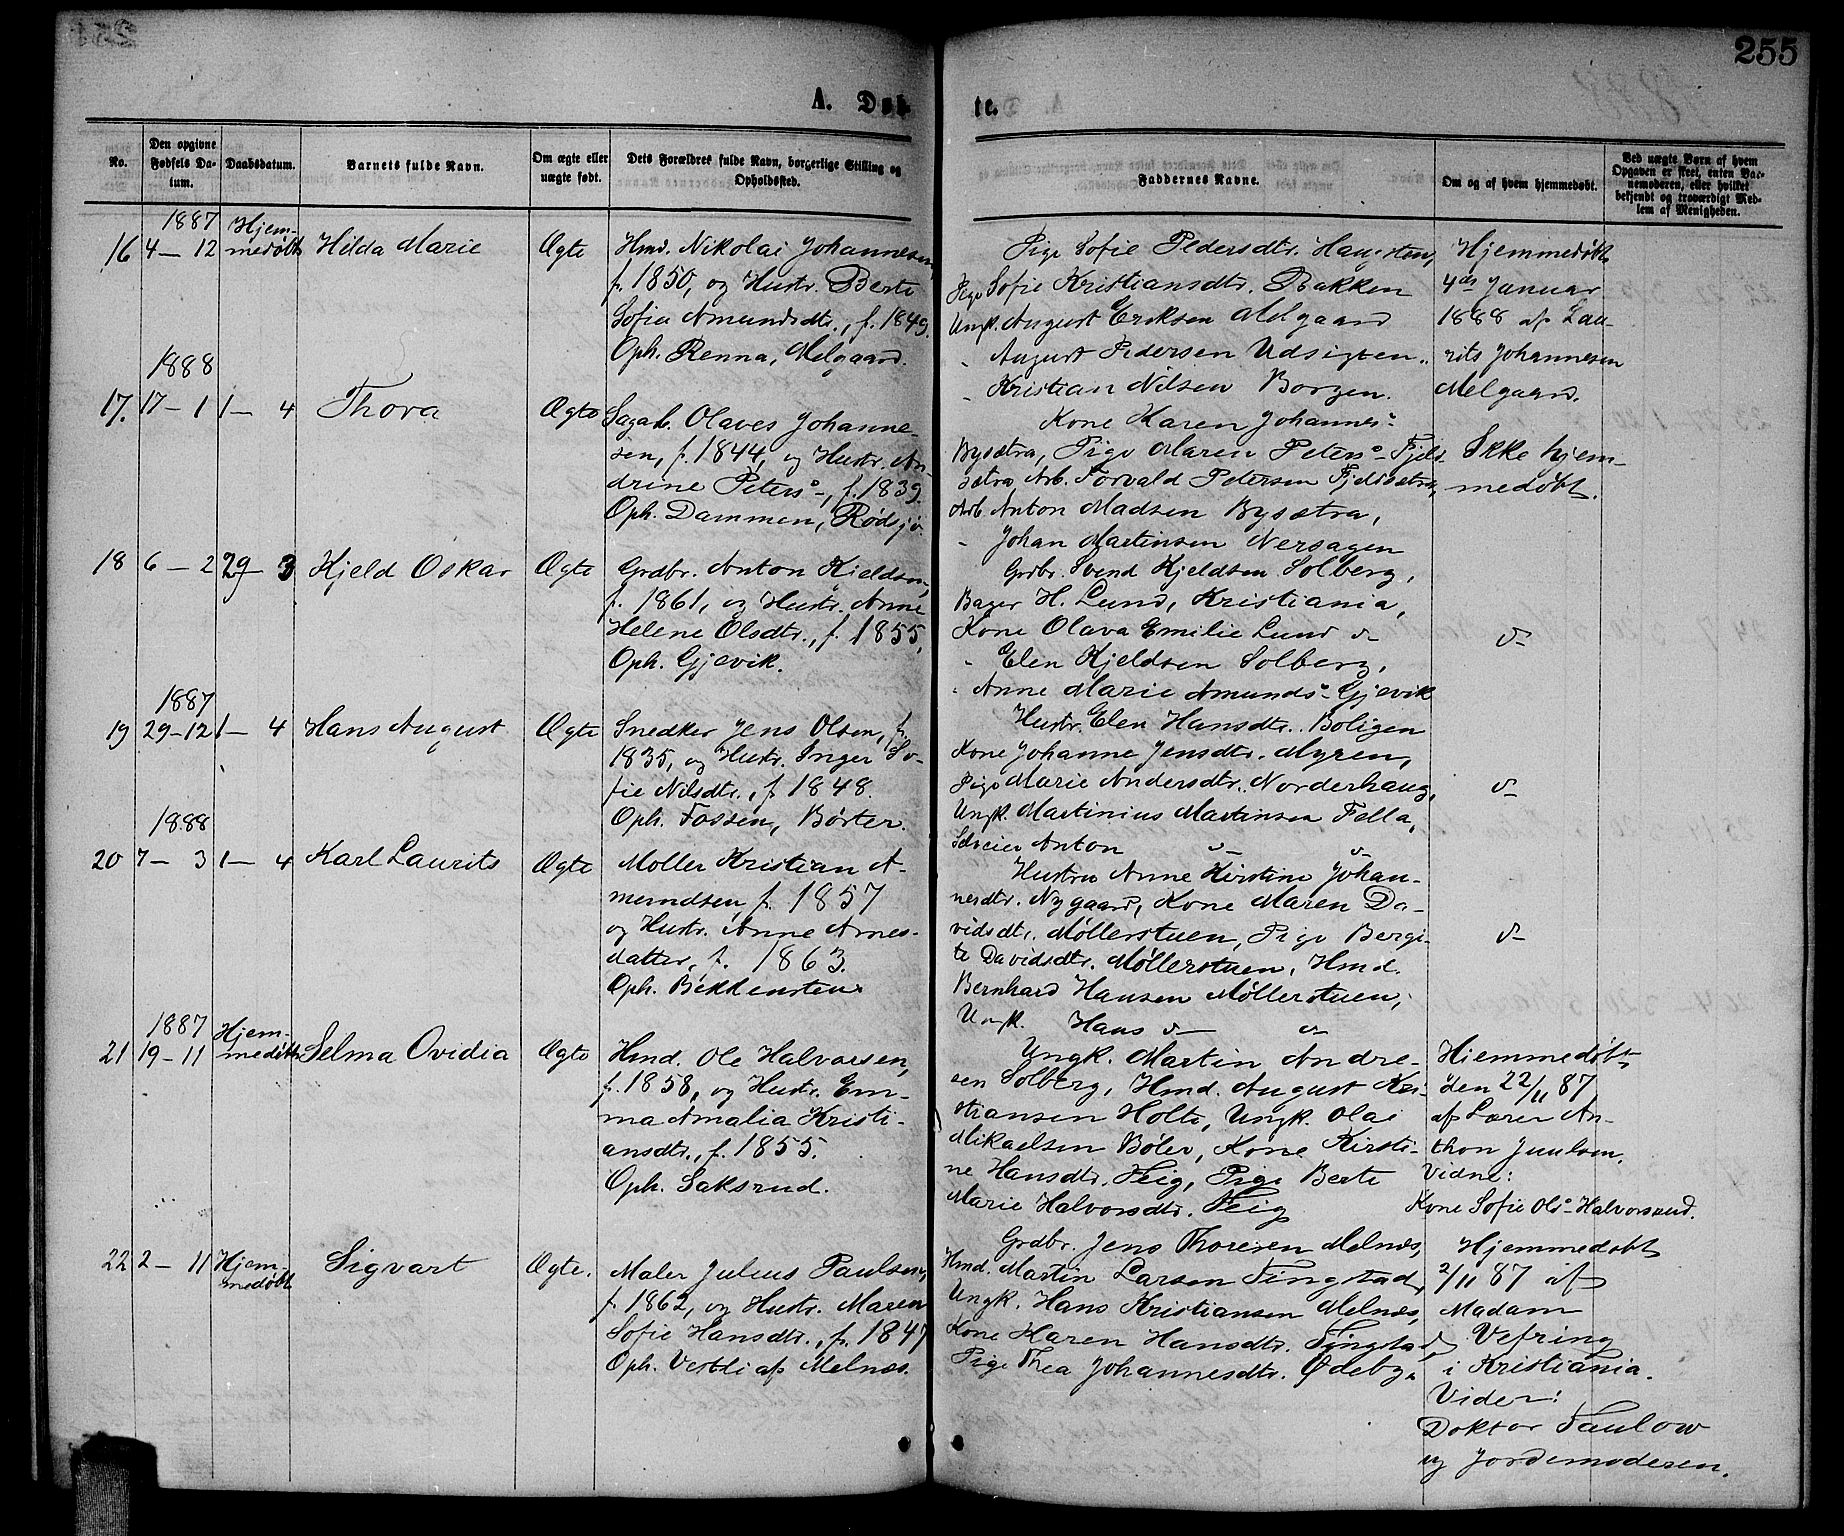 255
A. Døb
te.
No.
Den opgivne Fødsels Datum.
Daabsdatum.
Barnets fulde Navn.
Om ægte eller uægte født.
Dets Forældres fulde Navn, borgerlige Stilling og Opholdssted.
Faddernes Navne.
Om og af hvem hjemmedøbt.
Ved uægte Børn af hvem Opgaven er skeet, enten Barnemoderen, eller hvilket bekjendt og troværdigt Medlem af Menigheden.
1887
16 4–12 Hjem-
medøbt Hilda Marie Ægte
Hmd. Nikolai Johannesen,
f. 1850, og Hustr. Berte
Sofie Amundsdtr., f. 1849.
Oph. Renna, Melgaard.
Pige Sofie Pedersdtr. Haugsten,
Pige Sofie Kristiansdtr. Bakken
Ungk. August Eriksen Melgaard
" August Pedersen Udsigten
" Kristian Nilsen Borgen.
Hjemmedøbt
4de Januar
1888 af Lau-
rits Johannesen
Melgaard.
1888
17. 17–1 1–4 Thora Ægte
Sagarb. Olaves Johanne-
sen, f. 1844, og Hustr. An-
drine Peters-, f. 1839.
Oph. Dammen, Rødsjø.
Kone Karen Johannes-
Bysætra, Pige Maren Peters- Fjeld-
sætra, Arb. Torvald Petersen Fjeldsætra,
Arb. Anton Madsen Bysætra,
" Johan Martinsen Nersagen
Ikke hjem-
medøbt.
18 6–2 29–3 Hjeld Oskar Ægte
Grdbr. Anton Kjeldsen,
f. 1861, og Hustr. Anne
Helene Olsdtr., f. 1855,
Oph. Gjevik.
Grdbr. Svend Kjeldsen Solberg,
Bager H. Lund, Kristiania,
Kone Olava Emilie Lund do
" Elen Kjeldsen Solberg,
" Anne Marie Amunds- Gjevik
do
1887
19 29–12 1–4 Hans August Ægte
Snedker Jens Olsen, f.
1835, og Hustr. Inger So-
fie Nilsdtr., f. 1848.
Oph. Fossen, Børter.
Hustr. Elen Hansdtr. Boligen
Kone Johanne Jensdtr. Myren,
Pige Marie Andersdtr. Norderhaug,
Ungk. Martinius Martinsen Fella,
Selveier Anton do do
do
1888
20 7–3 1–4 Karl Laurits Ægte
Møller Kristian A-
mundsen, f. 1857
og Hustr. Anne Arnes-
datter, f. 1863.
Oph. Bekkensten.
Hustru Anne Kirstine Johan-
nesdtr. Nygaard, Kone Maren Da-
vidsdtr. Møllerstuen, Pige Bergi-
te Davidsdtr. Møllerstuen, Hmd.
Bernhard Hansen Møllerstuen,
Ungk. Hans do do
do
1887
21 19–11 Hjem-
medøbt Selma Ovidia Ægte
Hmd. Ole Halvorsen,
f. 1858, og Hustr. Em-
ma Amalia Kristi-
ansdtr., f. 1855.
Oph. Saksrud.
Ungk. Martin Andre-
sen Solberg, Hmd. August Kri-
stiansen Holte, Ungk. Olai
Mikaelsen Bøler, Kone Kirsti-
ne Hansdtr. Teig, Pige Berte
Marie Halvorsdtr. Teig
Hjemmedøbt
den 22/11 87
af Lærer An-
thon Juulsen.
Vidne:
Kone Sofie Ols- Halvorsrud.
22 2–11 Hjem-
medøbt Sigvart Ægte.
Maler Julius Paulsen,
f. 1862, og Hustr. Maren
Sofie Hansdtr., f. 1847
Oph. Vestli af Melnæs.
Grdbr. Jens Thoresen Melnæs,
Hmd. Martin Larsen Tingstad,
Ungk. Hans Kristiansen Melnæs,
Kone Karen Hansdtr. Tingstad,
Pige Thea Johannesdtr. Ødeby.
Hjemmedøbt
2/11 87 af
Madam
Vefring
i Kristiania.
Vidner:
Doktor Faulow
og Jordemoderen.